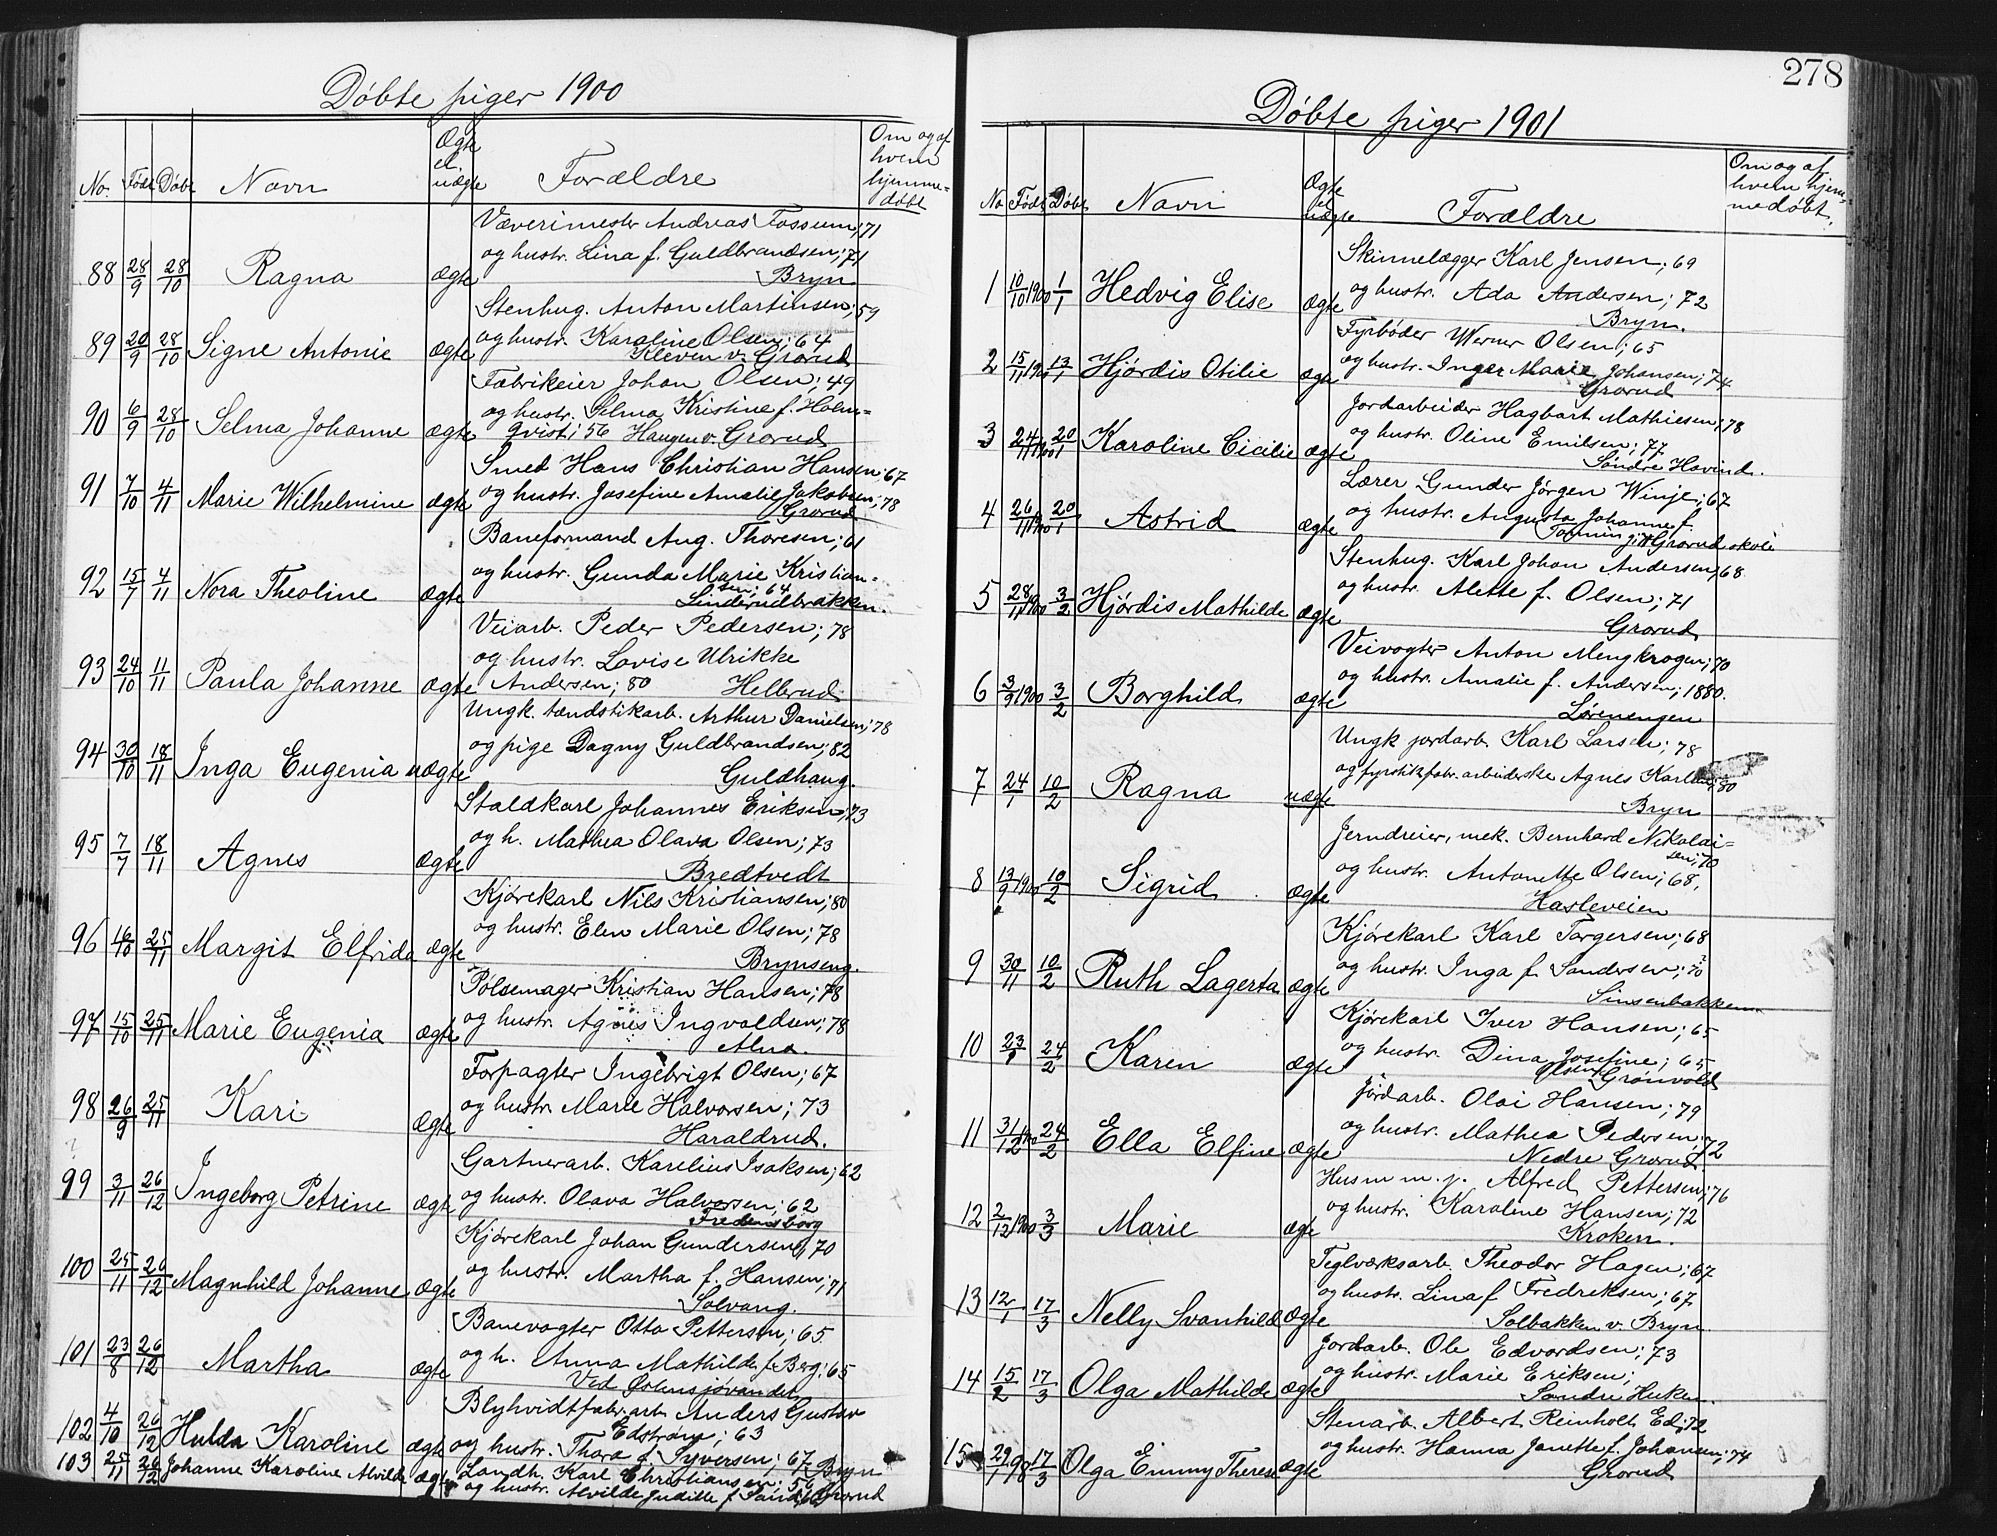 Døbte piger 1900
No. Født Døbt Navn Ægte el. uægte Forældre Om og af hvem hjemme= døbt
Væverimester Andreas Fossum; 71
og hustr. Lina f. Guldbrandsen; 71
88 28/9 28/10 Ragna ægte Bryn
Stenhug. Anton Martinsen; 59
og hustr. Karoline Olsen; 64
89 20/9 28/10 Signe Antonie ægte Kleven v. Grorud
Fabrikeier Johan Olsen; 49
og hustr. Selma Kristine f. Holm=
90 6/9 28/10 Selma Johanne ægte qvist; 56 Haugen v. Grorud
Smed Hans Christian Hansen; 67
91 7/10 4/11 Marie Wilhelmine ægte og hustr. Josefine Amalie Jakobsen; 78
Grorud
Baneformand Aug. Thoresen; 61
og hustr. Gunda Marie Kristian=
sen; 64
92 15/7 4/11 Nora Theoline ægte Linderudbakken.
Veiarb. Peder Pedersen; 78
og hustr. Lovise Ulrikke
93 24/10 11/11 Paula Johanne ægte Andersen; 80 Hellerud
Ungk. tændstikarb. Arthur Danielsen; 78
og pige Dagny Guldbrandsen; 82
94 30/10 18/11 Inga Eugenia uægte Guldhaug.
Staldkarl Johannes Eriksen; 73
og h. Mathea Olava Olsen; 73
95 7/7 18/11 Agnes ægte Bredtvedt
Kjørekarl Nils Kristiansen; 80
og hustr. Elen Marie Olsen; 78
96 16/10 25/11 Margit Elfrida ægte Brynseng.
Pølsemager Kristian Hansen; 78
og hustr. Agnes Ingvoldsen; 78
97 15/10 25/11 Marie Eugenia ægte Alna.
Forpagter Ingebrigt Olsen; 67
og hustr. Marie Halvorsen; 73
98 26/9 25/11 Kari ægte Haraldrud.
Gartnerarb. Karelius Isaksen; 62
og hustr. Olava Halvorsen; 62
99 3/11 26/12 Ingeborg Petrine ægte Fredensborg
Kjørekarl Johan Gundersen; 70
og hustr. Martha f. Hansen; 71
100 25/11 26/12 Magnhild Johanne ægte Solvang.
Banevogter Otto Pettersen; 65
og h. Anna Mathilde f. Berg; 65
101 23/8 26/12 Martha ægte Ved Østensjøvandet
Blyhvidtfabr. arb. Anders Gustav
Edstrøm; 63
102 4/10 26/12 Hulda Karoline ægte og hustr. Thora f. Syversen; 67 Bryn
103 25/11 26/12 Johanne Karoline Alvilde ægte Landh. Karl Christiansen; 56
og hustr. Alvilde Juditte f. Grorud
278
Døbte piger 1901
No Født Døbt Navn Ægte el uægte Forældre Om og af hvem hjem= medøbt.
Skinnelægger Karl Jensen; 69
og hustr. Ada Andersen; 72
1 10/10 1900 1/1 Hedvig Elise ægte Bryn.
Fyrbøder Werner Olsen; 65
2 15/11 1900 13/1 Hjørdis Otilie ægte og hustr. Inger Marie Johansen; 74
Grorud
Jordarbeider Hagbart Mathiesen; 78
og hustr. Oline Emilsen; 77
3 24/11 1900 20/1 Karoline Cicilie ægte Søndre Hovind.
Lærer Gunder Jørgen Winje; 67
og hustr. Augusta Johanne f.
4 26/11 1900 20/1 Astrid ægte Grorud skole
Stenhug. Karl Johan Andersen; 68.
og hustr. Alette f. Olsen; 71
5 28/11 1900 3/2 Hjørdis Mathilde ægte Grorud
Veivogter Anton Mengkrogen; 70
og hustr. Amalie f. Andersen; 1880.
6 3/9 1900 3/2 Borghild ægte Lørenengen
Ungk jordarb. Karl Larsen; 78
og fyrstikfabr. arbeiderske Agnes Karlsen; 80
7 24/1 10/2 Ragna uægte Bryn
Jerndreier, mek. Bernhard Nikolai=
sen; 70
og hustr. Antonette Olsen; 68,
8 13/9 1900 10/2 Sigrid ægte Hasleveien
Kjørekarl Karl Torgersen; 68
og hustr. Inga f. Sandersen; 70
9 30/11 10/2 Ruth Lagerta ægte Sinsenbakken
Kjørekarl Iver Hansen; 65
og hustr. Dina Josefine; 65
10 23/1 24/2 Karen ægte Olsen Grønvold
Jordarb. Olai Hansen; 79
og hustr. Mathea Pedersen; 72
11 31/12 1900 24/2 Ella Elfine ægte Nedre Grorud
Husm m. j. Alfred Pettersen; 76
og hustr. Karoline Hansen; 72
12 2/12 1900 3/3 Marie ægte Kroken.
Teglværksarb. Theodor Hagen; 67
og hustr. Lina f Fredriksen; 67
13 12/1 17/3 Nelly Svanhild ægte Solbakken v. Bryn
Jordarb. Ole Edvardsen; 73
og hustr. Marie Eriksen;
14 15/2 17/3 Olga Mathilde ægte Søndre Huken.
Stenarb. Albert Reinholt Ed; 72
og hustr. Hanna Janette f. Johansen; 74
15 29/1 98 17/3 Olga Emmy Therese ægte Grorud